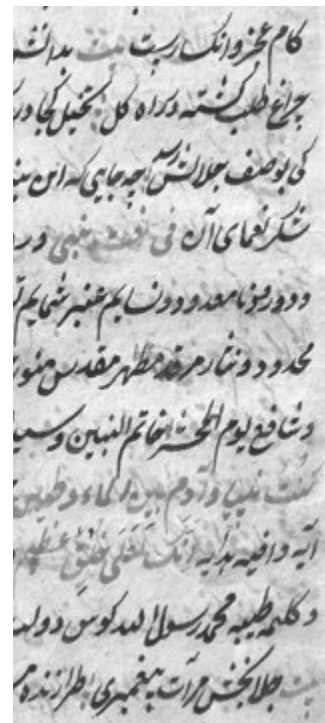 کام عجز و انکسارست بیت بدانش
چراغ طلب کشته در راه کل تخیل کجا در
کی بوصف جلالش رسد چه جایی که این
شکر نعمای آن فی نعت نبی و در
و درود نامعدود نسایم عنبر شمایم
محدود و نثار مرقد مطهر مقدس منور
و شافع یوم المحشر خاتم النبیین و سید
کنت نبیا و آدم بین الماء و الطین
آیه وافیه هدایه انک لعلی خلق عظیم
و کلمه طیبه محمد رسول الله کوس دولت
جلابخش مرآت پیغمبری طرازنده